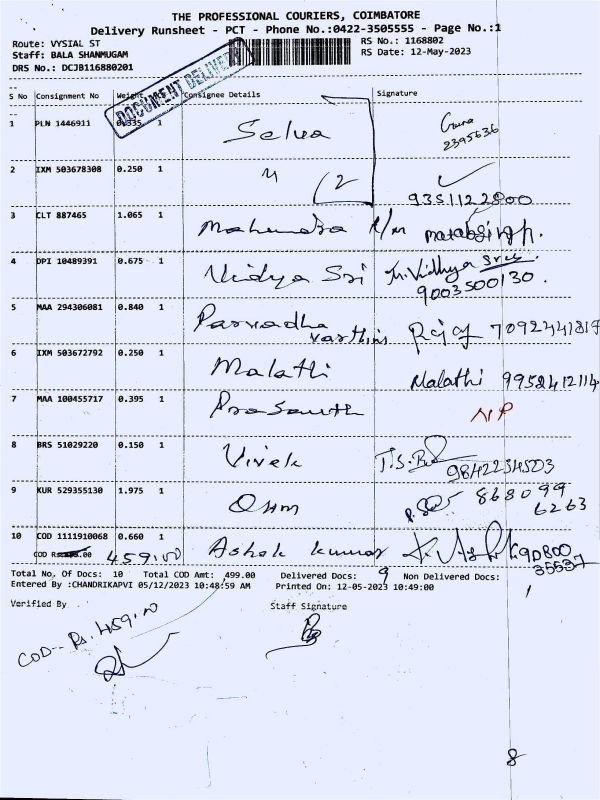 THE PROFESSIONAL COURIERS, COIMBATORE
Delivery Runsheet - PCT - Phone No.:0422-3505555 - Page No.:1
Route: VYSIAL ST
RS No.: 1168802
Staff: BALA SHANMUGAM
RS Date: 12-May-2023
DRS No.: DCJB116880201
DOCUMENT DELIVERY
S No Consignment No Weight Consignee Details Signature
1 PLN 1446911 0.335 1 Selva 2395636
2 IXM 503678308 0.250 1 " (2 9351122800
3 CLT 887465 1.065 1 Mahendra
4 DPI 10489391 0.675 1 Vidya Sri Vidhya Sree
9003500130.
5 MAA 294306081 0.840 1 Parvadha varthini Raj 7092441819
6 IXM 503672792 0.250 1 Malathi Malathi 9952412114
7 MAA 100455717 0.395 1 Prasanth NP
8 BRS 51029220 0.150 1 Vivek 9842234503
9 KUR 529355130 1.975 1 Ohm 868099
6263
10 COD 1111910068 0.660 1 Ashok kumar 90800
35537
COD 459.00
Total No. Of Docs: 10 Total COD Amt: 499.00 Delivered Docs: 9 Non Delivered Docs: 1
Entered By :CHANDRIKAPVI 05/12/2023 10:48:59 AM Printed On: 12-05-2023 10:49:00
Verified By Staff Signature
COD-- Rs. 459.00
8